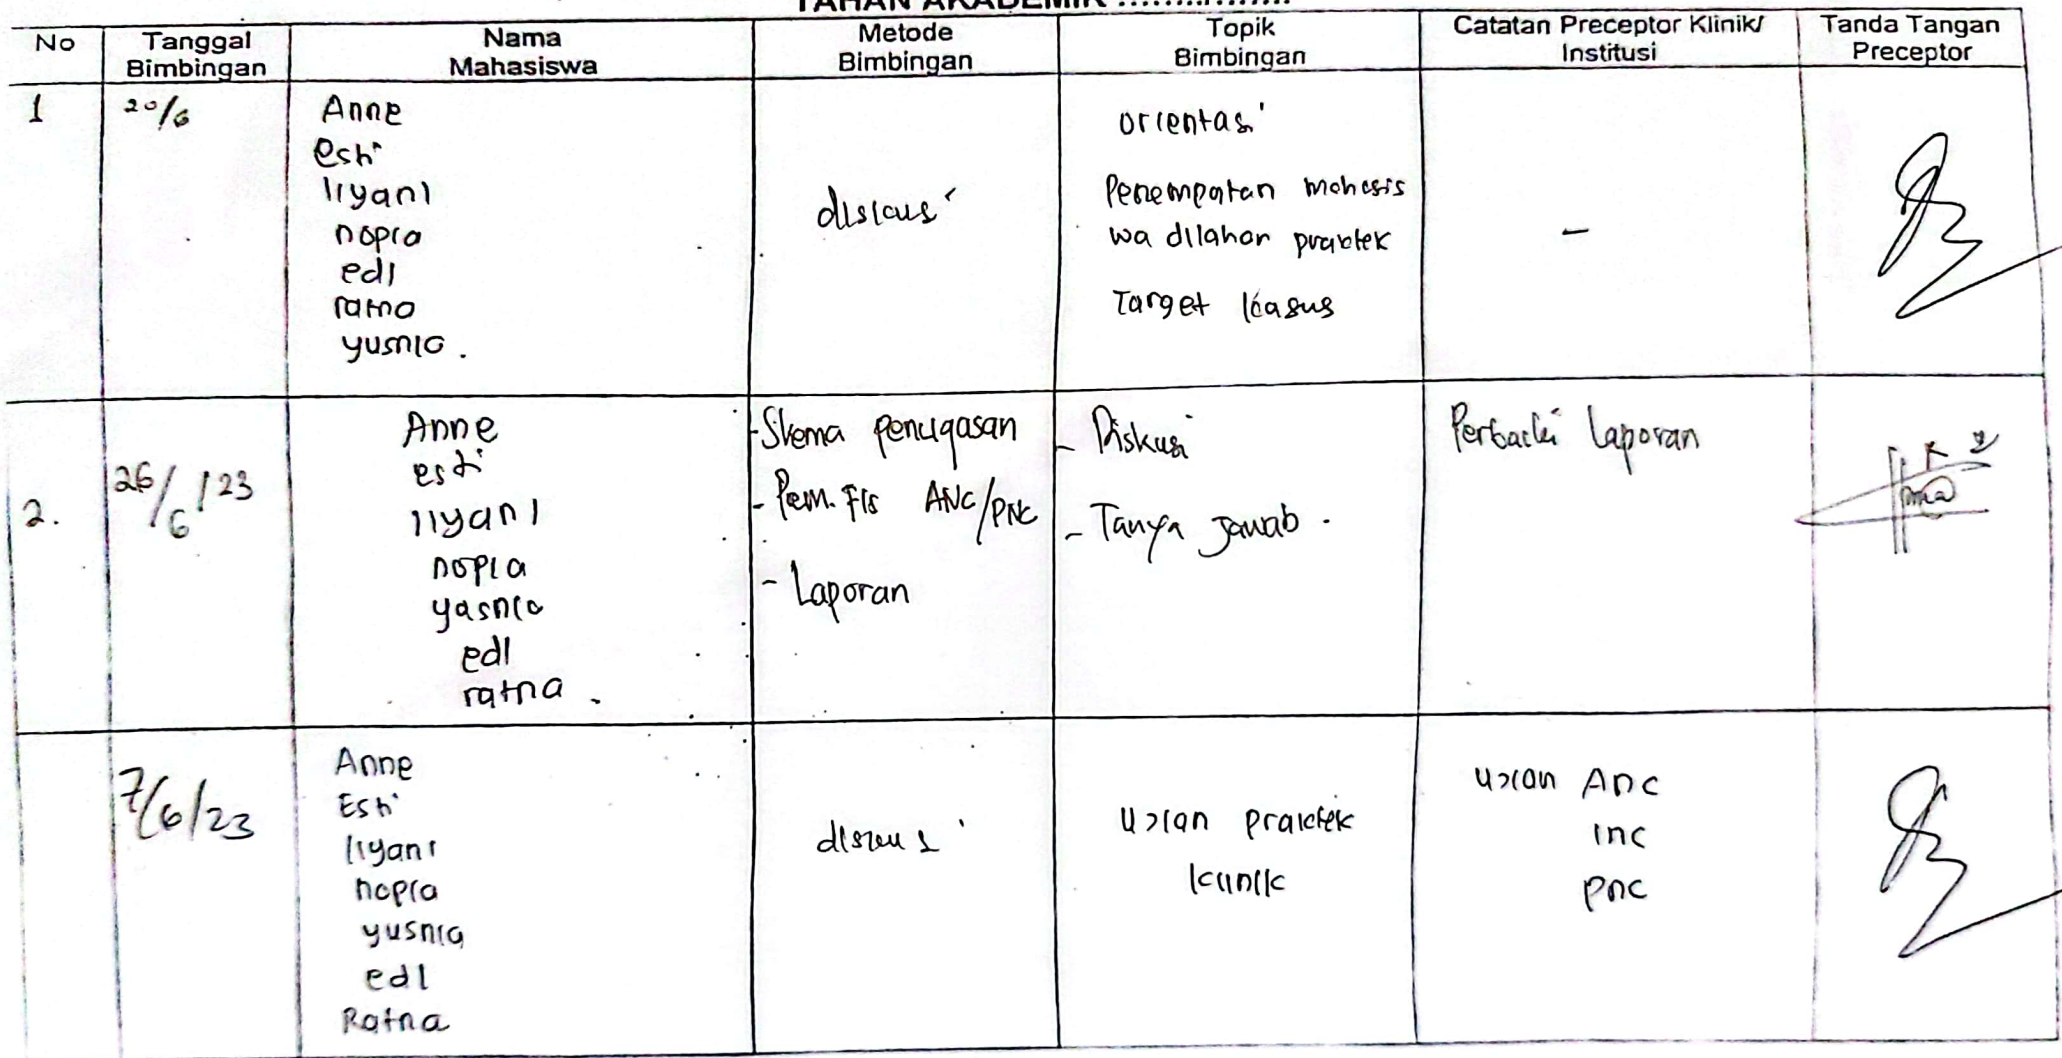 TAHAN AKADEMIK ..................
No
Tanggal
Bimbingan
Nama
Mahasiswa
Metode
Bimbingan
Topik
Bimbingan
Catatan Preceptor Klinik/
Institusi
Tanda Tangan
Preceptor
1
20/6
Anne
esti
liyani
nopia
edi
ratna
yusnia .
diskusi
orientasi
Penempatan mahasis
wa dilahan praktek
Target kasus
-
2.
26/6/23
Anne
esti
liyani
nopia
yasnia
edi
ratna .
- Skema penugasan
- Pem. Fis ANC/PNC
- Laporan
- Diskusi
- Tanya jawab .
Perbaiki laporan
7/6/23
Anne
Esti
liyani
nopia
yusnia
edi
Ratna
diskusi
ujian praktek
klinik
ujian Anc
inc
pnc